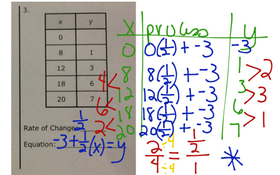 3.
x y
0
8 1
12 3
18 6
20 7
4<
6<
2<
Rate of Change: 1/2
Equation: -3+1/2(x)=y
x process y
0 0(1/2)+-3 -3
8 8(1/2)+-3 1 >2
12 12(1/2)+-3 3 >3
18 18(1/2)+-3 6 >1
20 20(1/2)+-3 7
2/4 ÷4 ÷4 = 1/2 / 1 *